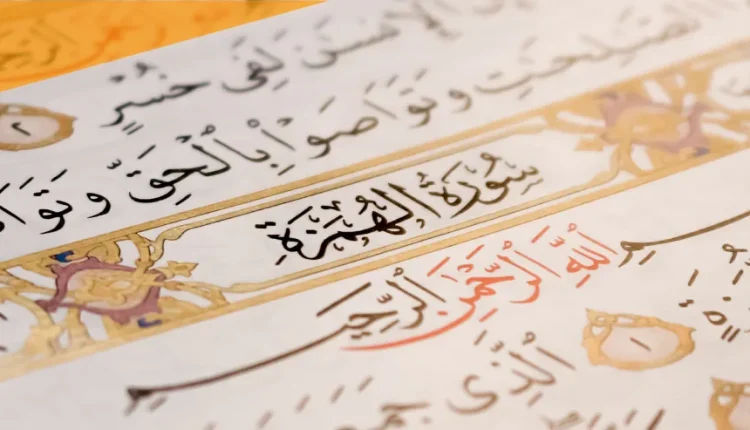 الْإِنسَٰنَ لَفِى خُسْرٍ ٢
الصَّٰلِحَٰتِ وَتَوَاصَوْا۟ بِالْحَقِّ وَتَوَا
سُورَةُ الْهُمَزَةِ
اللَّهِ الرَّحْمَٰنِ الرَّحِيمِ
١ الَّذِى جَمَعَ